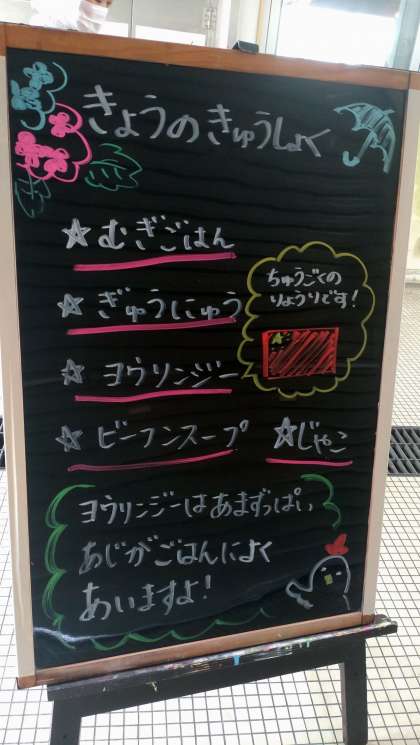 きょうのきゅうしょく
☆むぎごはん
☆ぎゅうにゅう
☆ヨウリンジー
ちゅうごくの
りょうりです!
☆ビーフンスープ ☆じゃこ
ヨウリンジーはあまずっぱい
あじがごはんによく
あいますよ!